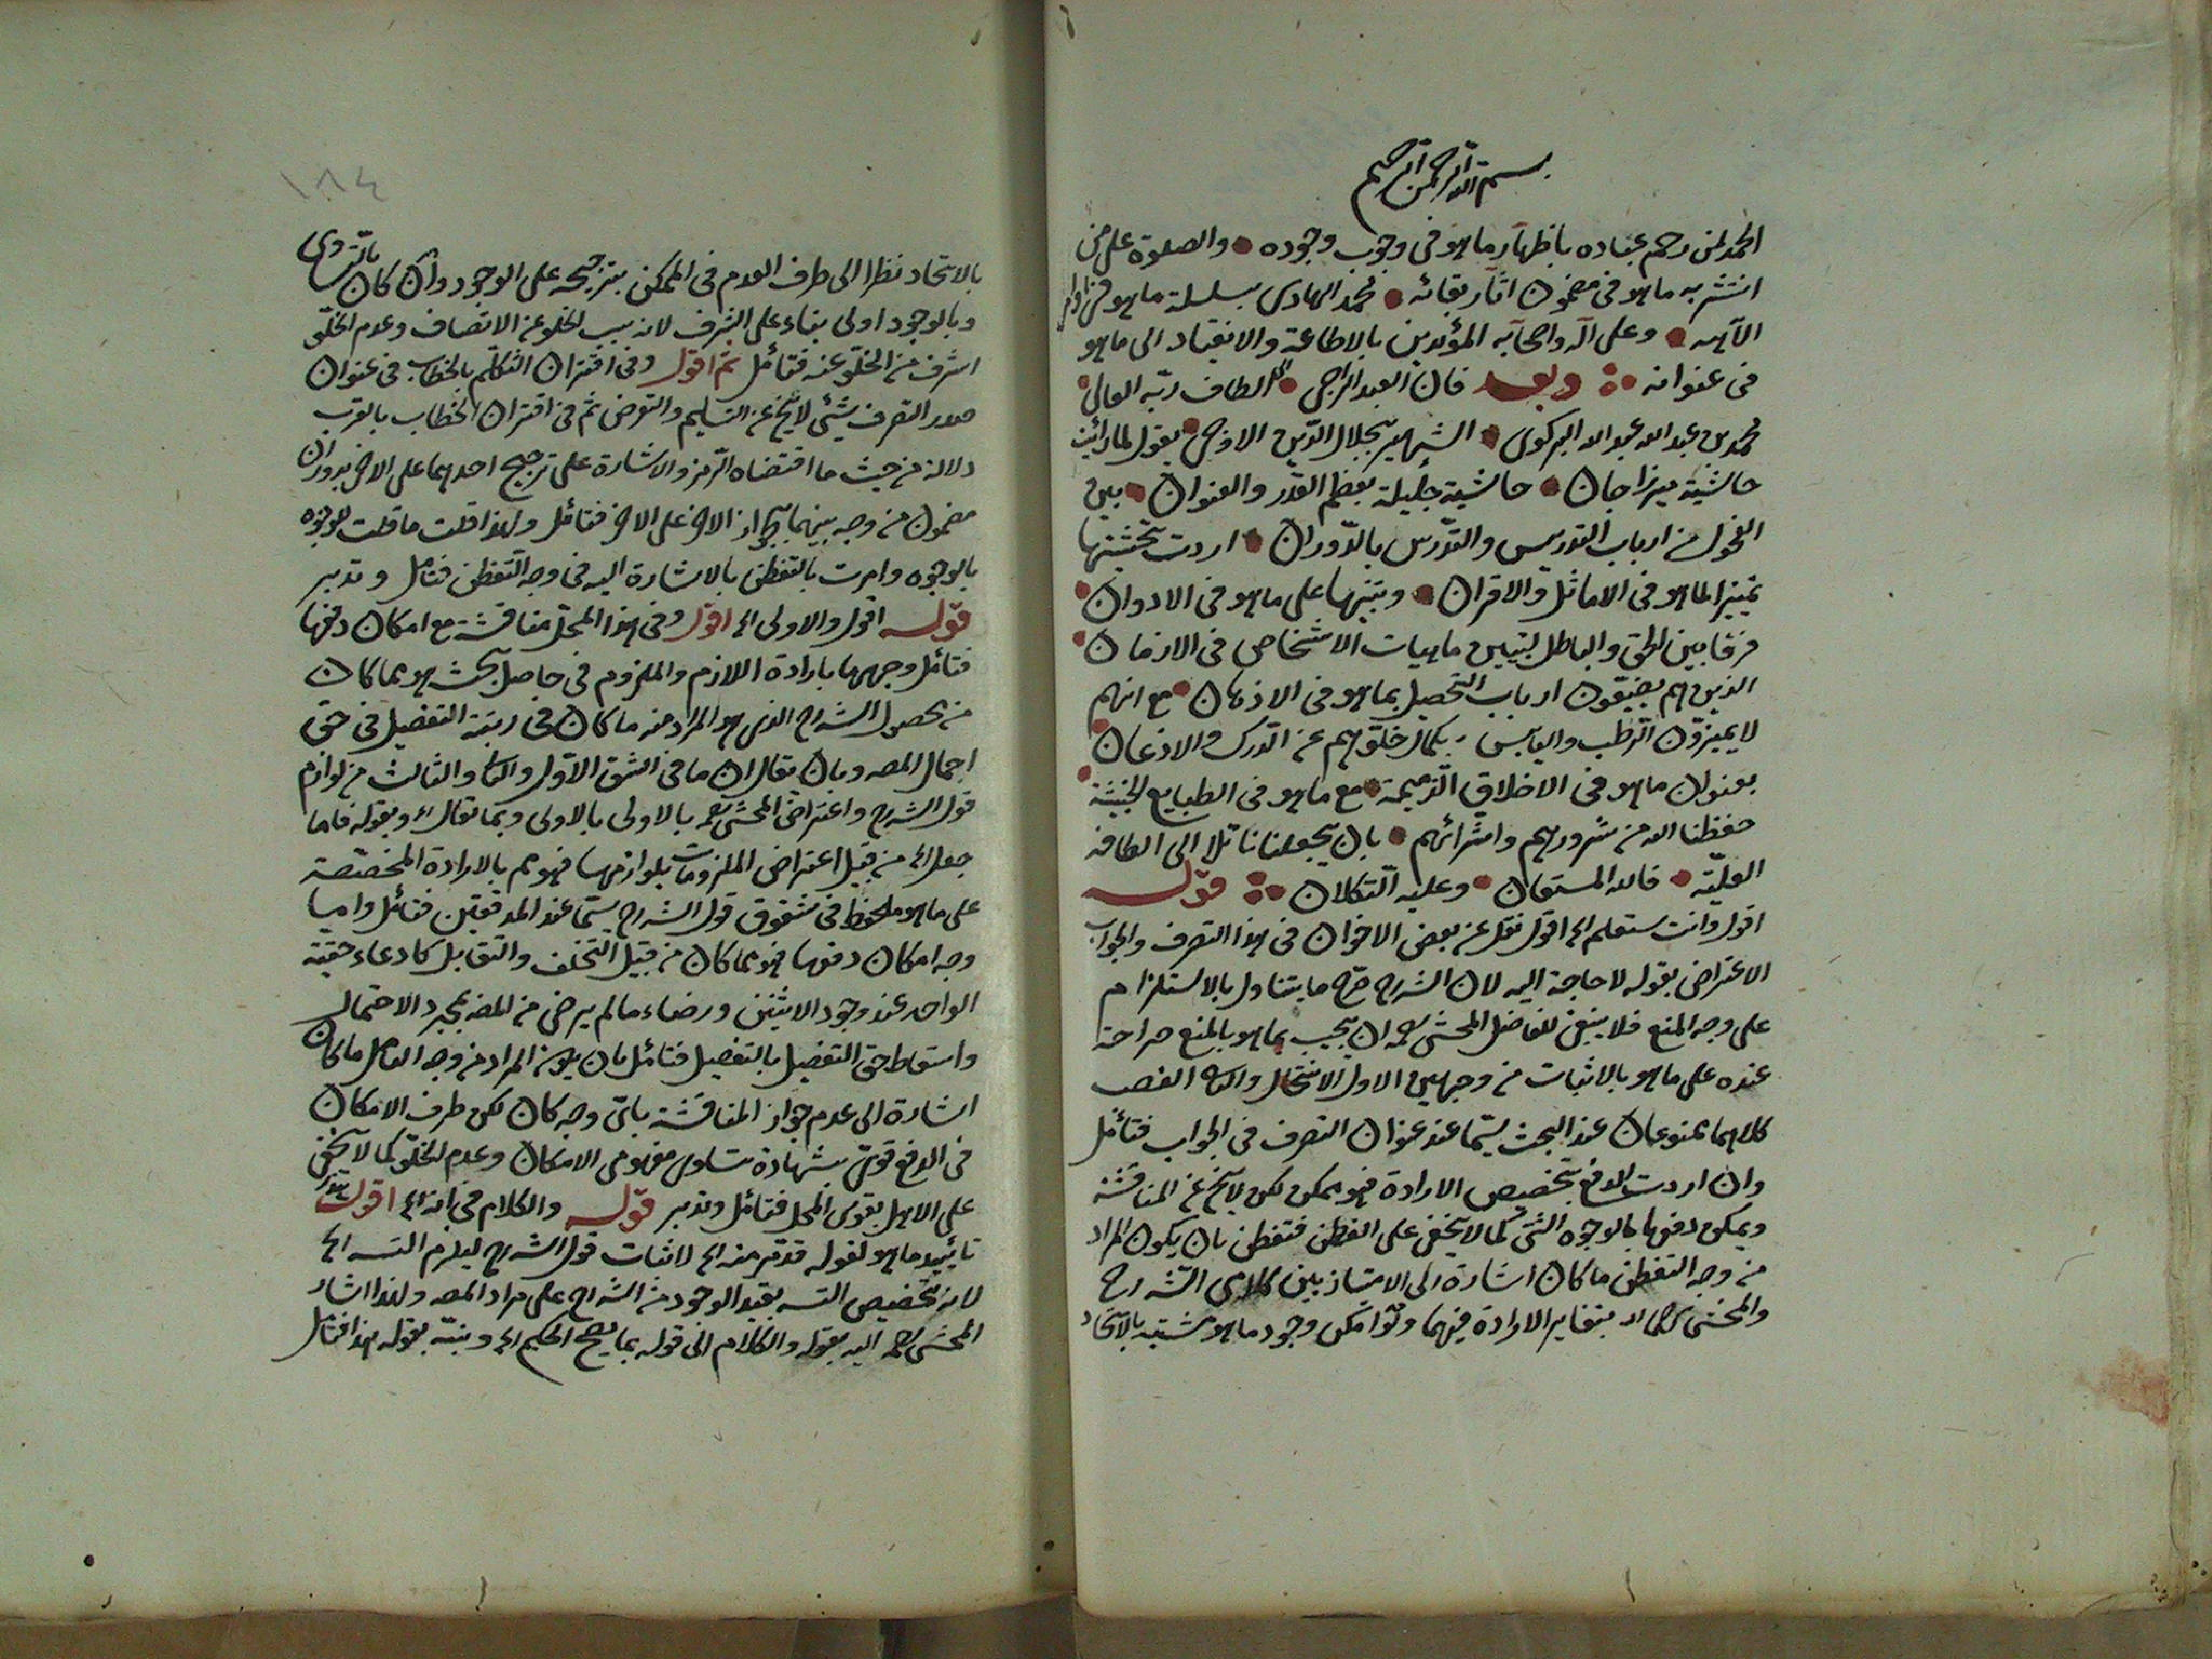 بسم الله الرحمن الرحيم
الحمد لمن رحم عباده باظهار ما هو فى وجوب وجوده والصلوة على من
انتشر به ما هو فى مضمون اثار بقائه محمد الهادى بسلسلة ما هو
الآهيه وعلى آله واصحابه المؤيدين بالاطاعة والانقياد الى ما هو
فى عنوانه وبعد فان العبد الراجى الى الطاف ربه العالى
محمد بن عبد الله عبد الله البركوى الشهير بجلال الدين الاوحى يقول لما رأيت
حاشية ميرزاجان حاشية جليلة بعظم القدر والعنوان بين
الفحول من ارباب التدريس والتدرس بالدوران اردت تحشيتها
تمييزا لما هو فى الاماثل والاقران وتنبيها على ما هو فى الادوان
فرقا بين الحق والباطل لتبيين ماهيات الاشخاص فى الازمان
الذين هم يضيقون ارباب التحصيل بما هو فى الاذهان مع انهم
لا يميزون الرطب واليابس بكمال خلوهم عن الدرك والاذعان
بعنوان ما هو فى الاخلاق الذميمة مع ما هو فى الطبايع الخبيثة
حفظنا الله من شرورهم واشرائهم بان يجعلنا نائلا الى الطافه
العلية فالله المستعان وعليه التكلان قوله
اقول وانت ستعلم اه اقول نقل عن بعض الاخوان فى هذا التصرف والجواب
الاعتراض بقوله لا حاجة اليه لان الشرح صرح ما يتناول بالاستلزام
على وجه المنع فلا ينبغى للفاضل المحشى رحمه ان يجيب بما هو بالمنع صراحة
عنده على ما هو بالاثبات من وجهين الاول الانتحال والثانى الغصب
كلاهما ممنوعان عند البحث سيما عند عنوان التصرف فى الجواب فتأمل
وان اردت الدفع بتخصيص الارادة فهو ممكن لكن لا يخ عن المناقشة
ويمكن دفعها بالوجوه الشتى كما لا يخفى على الفطن فتفطن بان يكون المراد
من وجه التفطن ما كان اشارة الى الامتياز بين كلامى الشارح
والمحشى رحمهما الله بتغاير الارادة فيهما ولو امكن وجود ما هو شبيه بالاتحاد
١٨٤
بالاتحاد نظرا الى طرف العدم فى الممكن بترجيحه على الوجود وان كان بالتساوى
وبالوجود اولى بناء على الشرف لانه سبب لخلو عن الاتصاف وعدم الخلو
اشرف من الخلو عنه فتأمل ثم اقول وفى اقتران التكلم بالخطاب فى عنوان
صدر التصرف شيئ لا يخ عن التسليم والتعرض ثم فى اقتران الخطاب بالقرب
دلالة من حيث ما اقتضاه الرمز والاشارة على ترجيح احدهما على الاخر بدوران
مضمون من وجه بينهما بجواز الاخر على الاخر فتأمل ولهذا قلت ما قلت بالوجوه
بالوجوه وامرت بالتفطن بالاشارة اليه فى وجه التفطن فتأمل وتدبر
قوله اقول والاولى اه اقول وفى هذا المحل مناقشة مع امكان دفعها
فتأمل وجهها بارادة اللازم والملزوم فى حاصل بحث هو مما كان
من محصول الشراح الذى هو المراد منه ما كان فى رتبة التفصيل فى حق
اجمال المصه وبان يقال ان ما فى الشق الاول والثانى والثالث من لوازم
قول الشرح واعتراض المحشى رحمه بالاولى بالاولى وبما يقال اه وبقوله فاما
جعل اه من قبيل اعتراض الملزومات بلوازمها فهو مم بالارادة المخصصة
على ما هو ملحوظ فى شقوق قول الشرح سيما عند المدققين فتأمل واما
وجه امكان دفعها فهو مما كان من قبيل التخلف والتقابل كادعاء حقية
الواحد عند وجود الاثنين ورضاء ما لم يرض من المصه بمجرد الاحتمال
واسقاط حق التفصيل بالتفصيل فتأمل بان يكون المراد من وجه التأمل ما كان
اشارة الى عدم جواز المناقشة باى وجه كان لكن طرف الامكان
فى الدفع قوى بشهادة تساوى مفهومى الامكان وعدم الخلو كما لا يخفى
على الاهل بقوى المحل فتأمل وتدبر قوله والكلام فى انه اه اقول هذا
تأييد ما هو لقوله قد تم منه اه لاثبات قول الشرح ليلزم التسه اه
لانه تخصيص التسه بقيد الوجود من الشراح على مراد المصه ولهذا اشار
المحشى رحمه اليه بقوله والكلام الى قوله بما يصح الحكيم اه ونبه بقوله هذا فتأمل